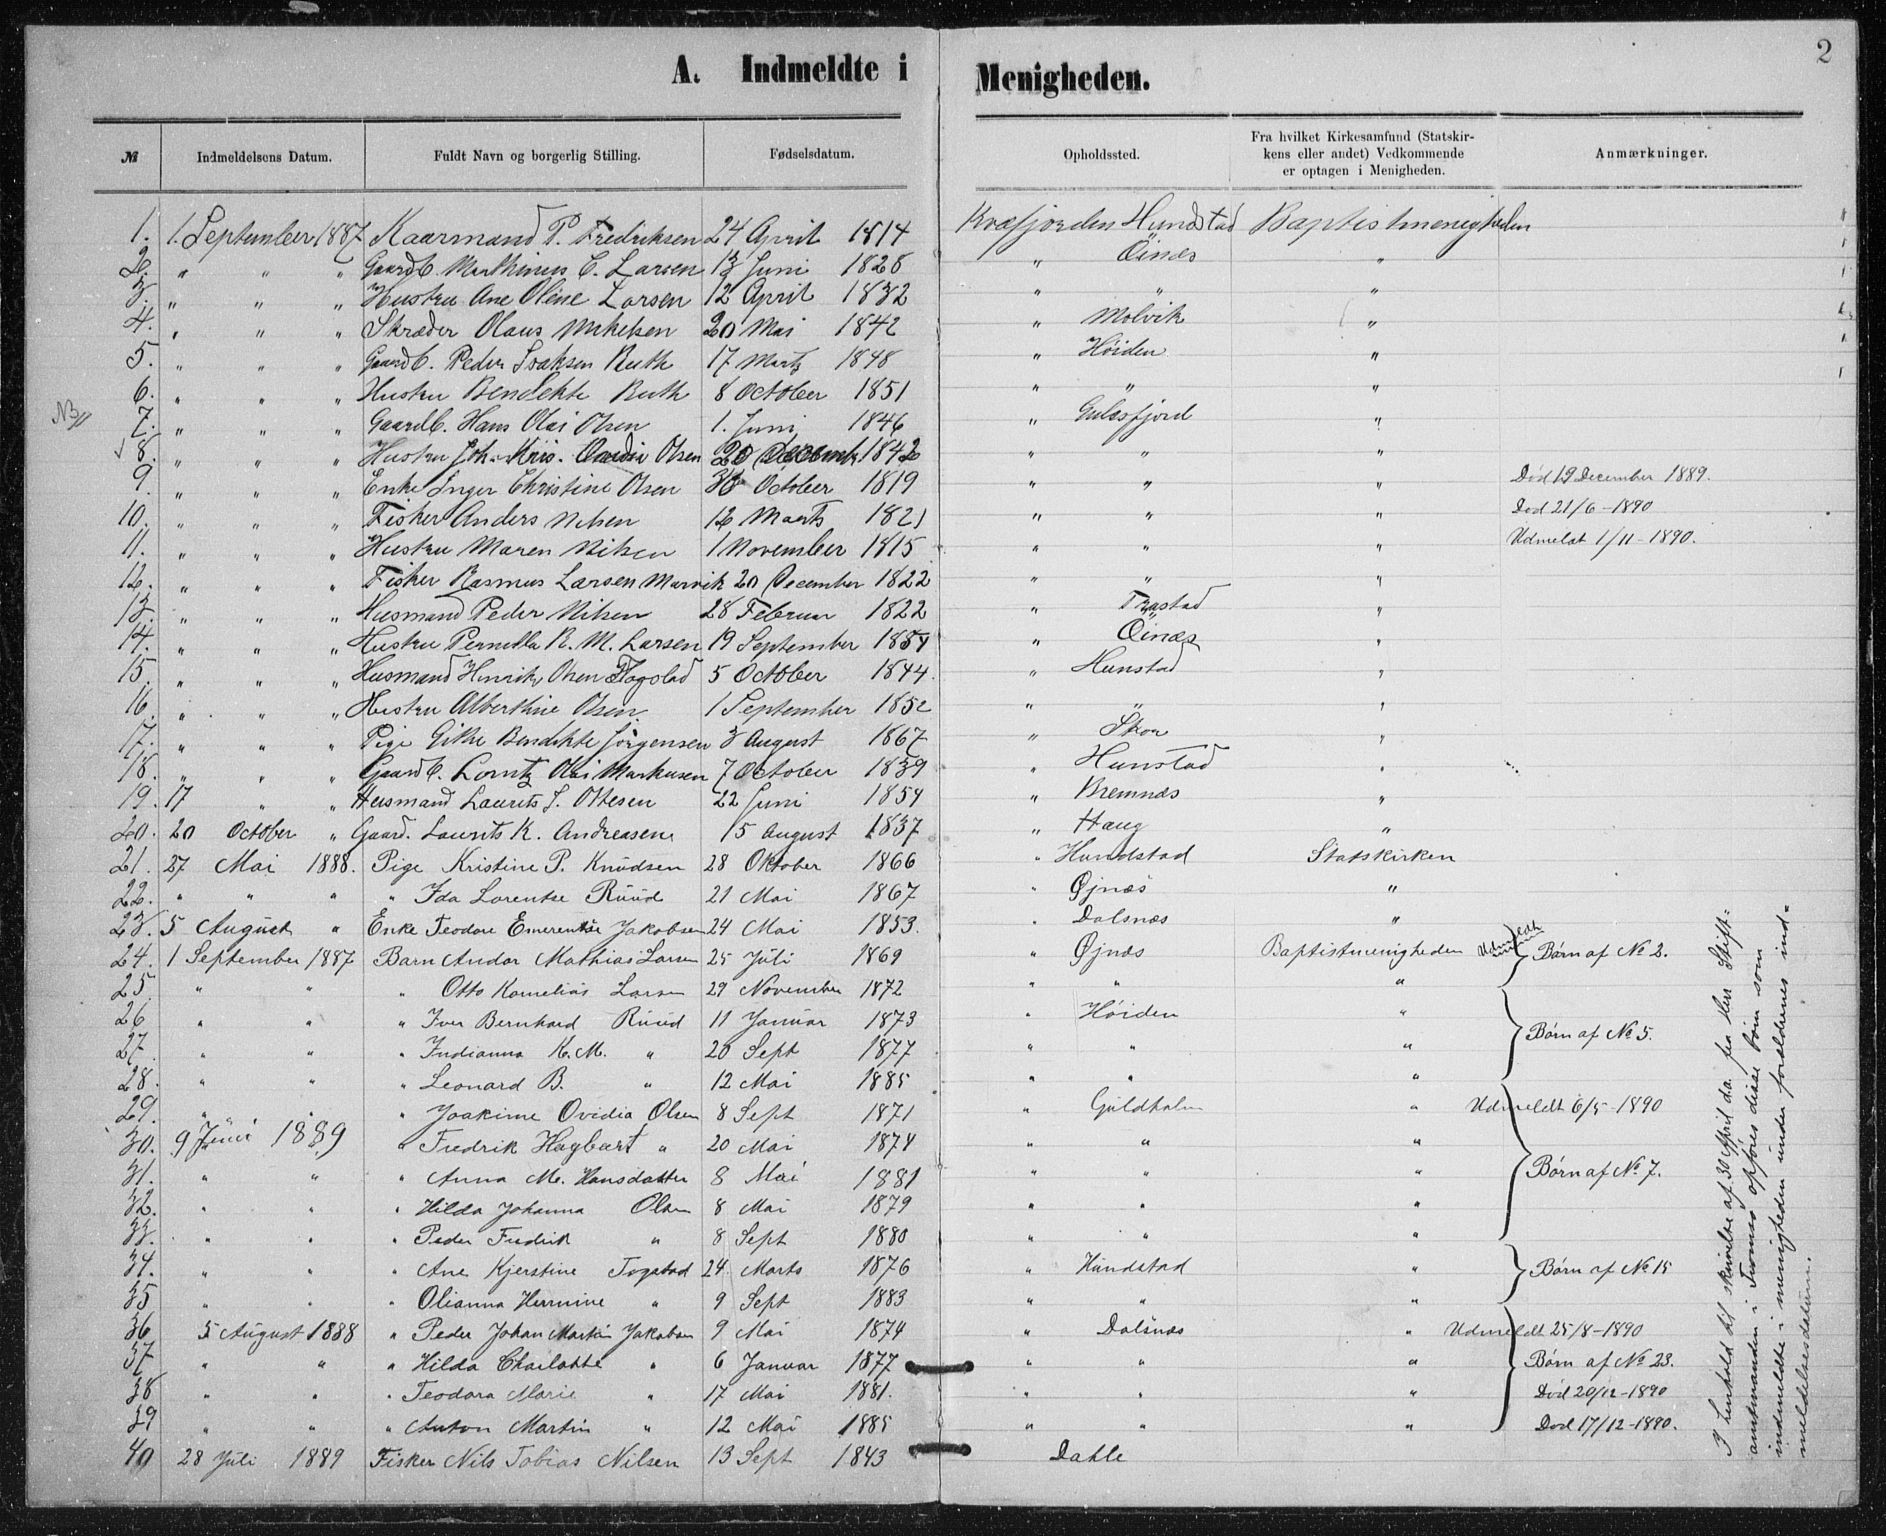 2
A. Indmeldte i Menigheden.
№ Indmeldelsens Datum. Fuldt Navn og borgerlig Stilling. Fødselsdatum. Opholdssted. Fra hvilket Kirkesamfund (Statskirkens eller andet) Vedkommende er optagen i Menigheden. Anmærkninger.
1. 1. September 1887 Kaarmand P. Fredriksen 24 April 1814 Kvæfjorden Hundstad Baptistmenigheden
2. " " " Gaardb. Marthinus C. Larsen 13 Juni 1828 " Öinæs "
3. " " " Hustru Ane Oline Larsen 12 April 1832 " " "
4. " " " Skræder Olaus Mikelsen 20 Mai 1842 " Molvik "
5. " " " Gaardb. Peder Isaksen Ruth 17 Marts 1848 " Höiden "
6. " " " Hustru Bendekte Ruth 8 October 1851 " " "
NB 7. " " " Gaardb. Hans Olai Olsen 1. Juni 1846 " Gulesfjord "
8. " " " Hustru Joh. Kris. Olsen 20 December 1842 " " "
9. " " " Enke Inger Christine Olsen October 1819 " " " Död 19 December 1889.
10. " " " Fisker Anders Nilsen 12 Marts 1821 " " " Död 21/6-1890
11. " " " Hustru Maren Nilsen 1 November 1815 " " " Udmeldt 1/11-1890.
12. " " " Fisker Rasmus Larsen Marvik 20 December 1822 " " "
13. " " " Husmand Peder Nilsen 28 Februar 1822 " Trastad "
14. " " " Hustru Pernella R. M. Larsen 19 September 1854 " Öinæs "
15. " " " Husmand Henrik Olsen Togstad 5 October 1844. " Hunstad "
16. " " " Hustru Alberthine Olsen 1 September 1852 " " "
17. " " " Pige Gitle Bendikte Jörgensen 3 August 1867 " Skor "
18. " " " Gaardb. Lorntz Olai Markusen 7 October 1839 " Hunstad "
19. 17 " " Husmand Laurits J. Ottesen 22 Juni 1854 " Bremnæs "
20. 20 October " Gaard. Laurits K. Andreasen 15 August 1837 " Haug "
21. 27 Mai 1888. Pige Kristine P. Knudsen 28 Oktober 1866 " Hundstad Statskirken
22. " " " " Ida Lorentse Ruud 21 Mai 1867 " Øjnæs "
23. 5 August " Enke Teodore Emerentse Jakobsen 24 Mai 1853. " Dalsnæs "
24. 1 September 1887 Barn Andor Mathias Larsen 25 Juli 1869 " Øjnæs Baptistmenigheden Udmeldt Børn af No 2.
25 " " " Otto Kornelius Larsen 29 November 1872 " " "
26 " " " Iver Bernhard Ruud 11 Januar 1873 " Höiden "
27. " " " Indianna K. M. " 20 Sept 1877 " " " Børn af No 5.
28. " " " Leonard B. " 12 Mai 1885 " " "
29. " " " Joakime Ovidia Olsen 8 Sept 1871 " Guldholm " Udmeldt 6/5-1890
30. 9 Juni 1889 " Fredrik Hagbart " 20 Mai 1874 " " "
31. " " " Anna M. Hansdatter 8 Mai 1881 " " " Børn af No 7.
32. " " " Hilda Johanna Olsen 8 Mai 1879 " " "
33. " " " Peder Fredrik " 8 Sept 1880 " " "
34. " " " Ane Kjerstine Togstad 24. Marts 1876 " Hundstad " Børn af No 15
35 " " " Olianna Hermine " 9 Sept 1883 " " "
36 5 August 1888 " Peder Johan Martin Jakobsen 9 Mai 1874 " Dalsnæs " Udmeldt 25/8-1890
37 " " " Hilda Charlotte " 6 Januar 1877 " " " Børn af No 23.
38 " " " Teodora Marie " 17 Mai 1881. " " " Død 20/12-1890
39 " " " Anton Martin " 12 Mai 1885 " " " Død 17/12-1890.
40 28 Juli 1889 Fisker Nils Tobias Nilsen 13 Sept 1843 Dahle
I henhold til skrivelse af 30 April da. fra Herr Stift=
amtmanden i Tromsø opføres disse børn som
indmeldte i menigheden under forældrenes ind=
meldelsesdatum.